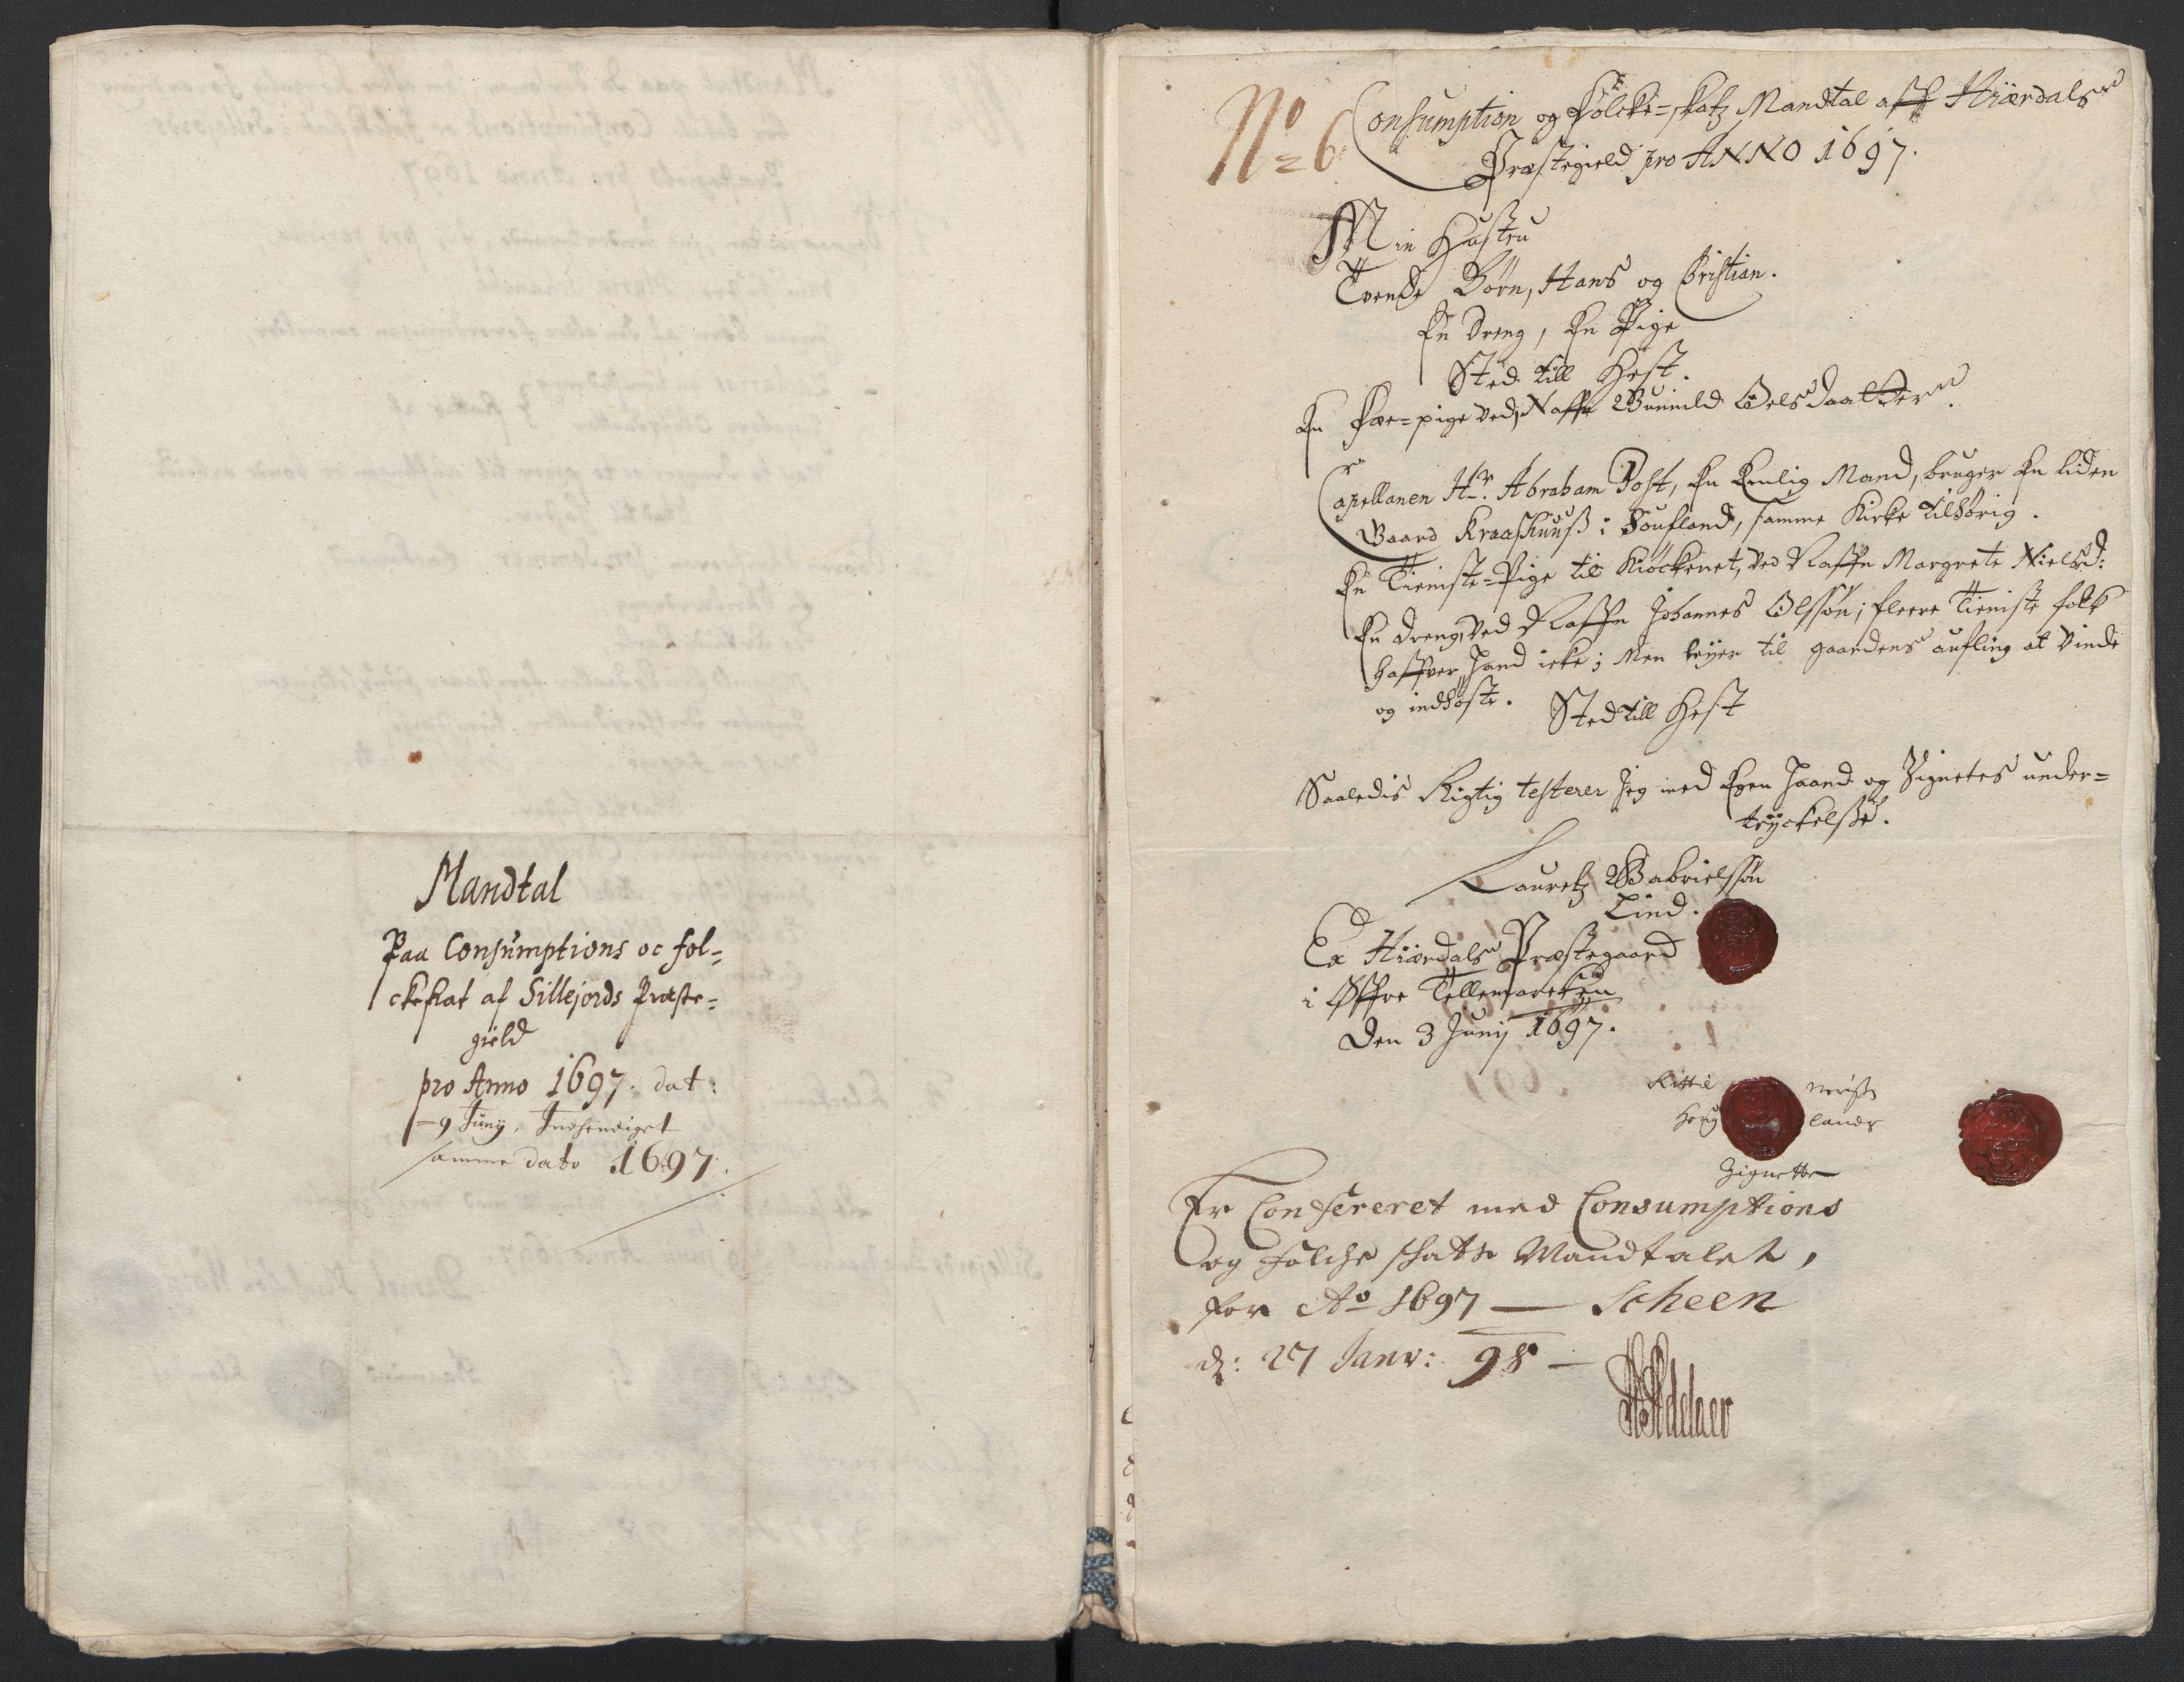 Mandtal
Paa Consumptions oc fol-
ckeskat af Sillejords Præste-
gield
pro Anno 1697. dat:
9 Junij, Indhendiget
samme dato 1697.
No 6
Consumption og Folcke-skatz Mandtal aff Hiærdals
Præstegield pro ANNO 1697.
Min Hustru
Tvende Børn, Hans og Christian.
En Dreng, En Pige
Sted till Hest.
En Fæ-pige ved Naffn Gunnild Oels Daatter.
Capellanen Hr. Abraham Post, En Enlig Mand, bruger En liden
Gaard Kraashuuß i Soufland, samme Kirke tilhørig.
En Tieniste-Pige til Kiøckenet, ved Naffn Margrete Nielsd:
En Dreng, ved Naffn Johannes Olssøn; fleere Tieniste folk
haffver hand icke; Men leyer til gaardens aufling at vinde
og indhøste. Sted till Hest
Saaledis Rigtig testerer Jeg med Egen Haand og Signetes under-
tryckelße.
Lauretz Gabrielssøn
Lind.
Ex Hiærdals Præstegaard
i Øffre Tellemarcken
Den 3 Junij 1697.
Kittil
lands
Zignette
Er Confereret med Consumptions
og Folche schatte Mandtalet,
for Ao 1697 — Scheen
d: 27 Janv: 98 —
Adelaer